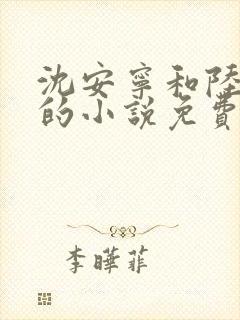 沈安寧和陸
的小說免費
李曄菲